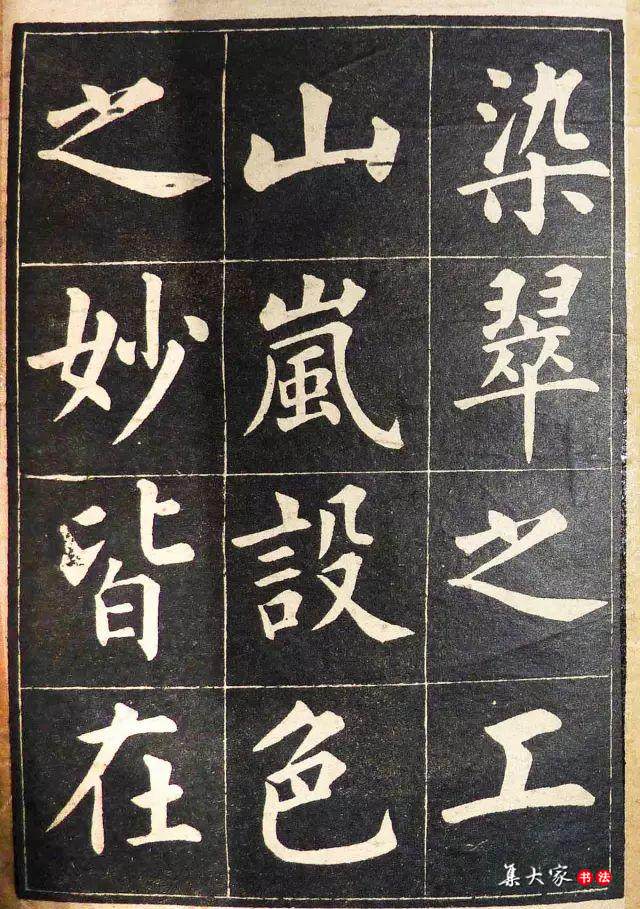 染翠之工
山嵐設色
之妙皆在
集大家书法